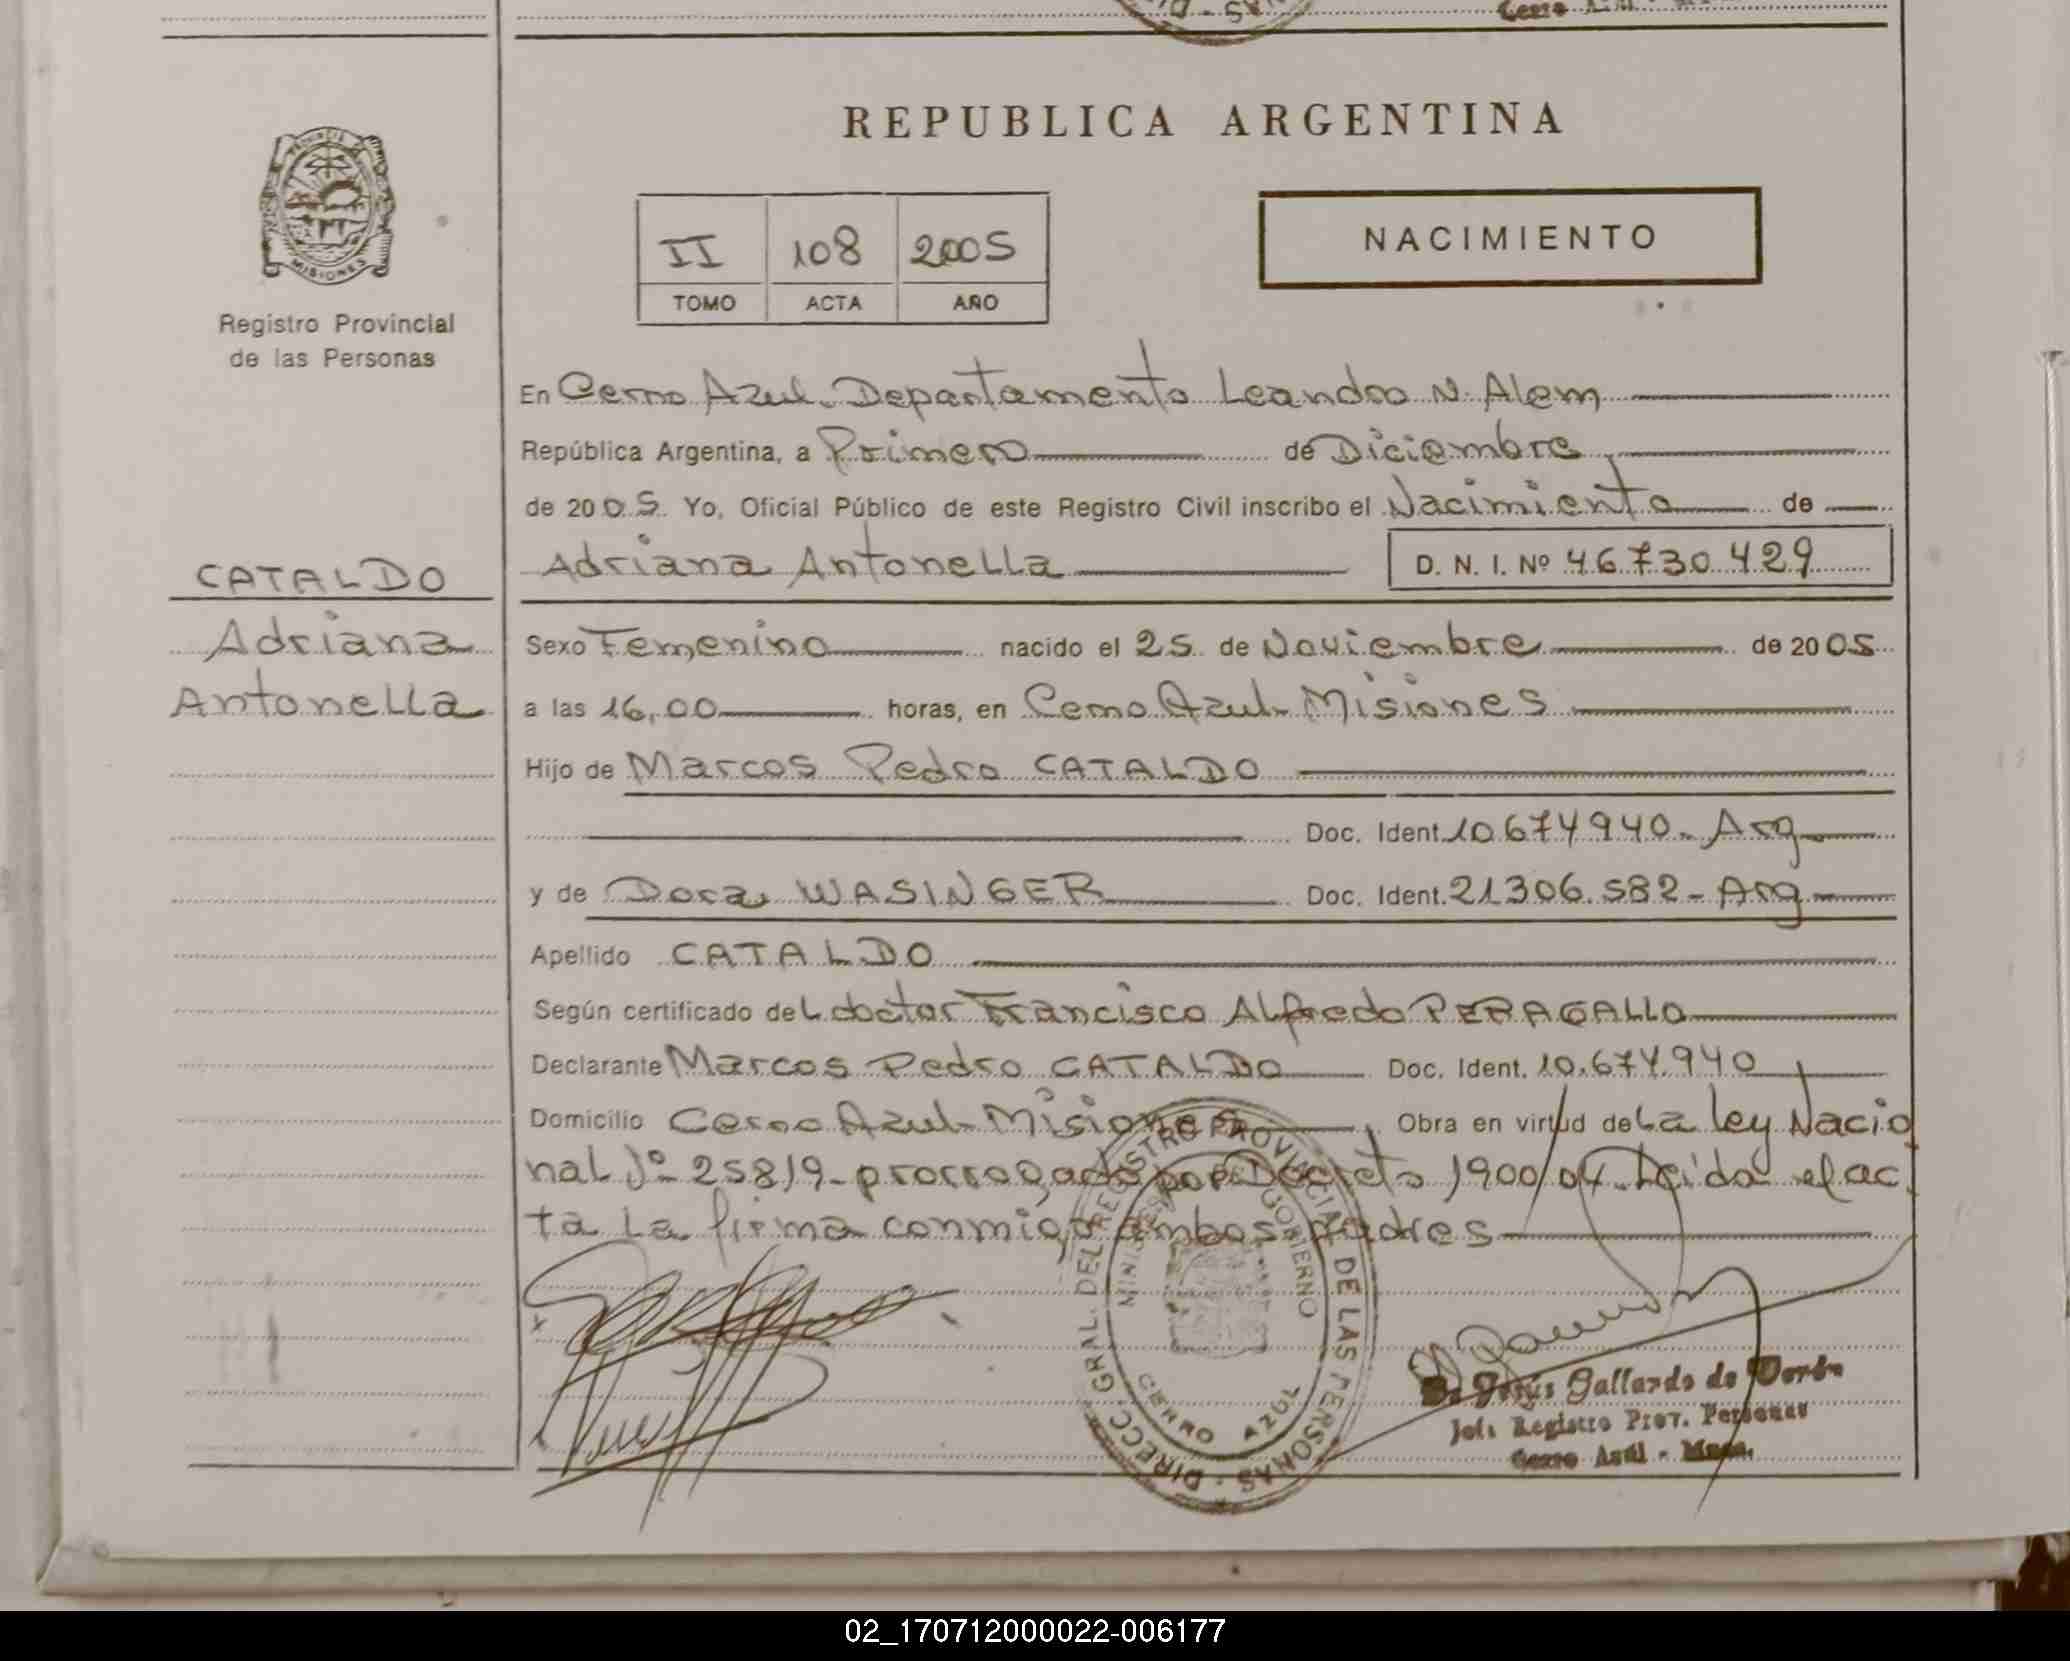 REPUBLICA ARGENTINA
PROVINCIA DE
MISIONES
Registro Provincial
de las Personas
II 108 2005
TOMO ACTA AÑO
NACIMIENTO
En Cerro Azul. Departamento Leandro N. Alem
República Argentina, a Primero de Diciembre
de 2005. Yo, Oficial Público de este Registro Civil inscribo el Nacimiento de
CATALDO
Adriana
Antonella
Adriana Antonella D. N. I. Nº 46.730.429
Sexo Femenino nacido el 25 de Noviembre de 2005
a las 16,00 horas, en Cerro Azul- Misiones
Hijo de Marcos Pedro CATALDO
Doc. Ident. 10.674.940- Arg
y de Dora WASINGER Doc. Ident. 21.306.582- Arg
Apellido CATALDO
Según certificado del doctor Francisco Alfredo PERAGALLO
Declarante Marcos Pedro CATALDO Doc. Ident. 10.674.940
Domicilio Cerro Azul- Misiones Obra en virtud de La Ley Nacio
nal Nº 25819- prorrogado por Decreto 1900/04. Leida el ac
ta La firma conmigo ambos padres
DIRECC. GRAL. DEL REGISTRO PROVINCIAL DE LAS PERSONAS
GOBIERNO
CERRO AZUL
Gallardo de
Jefe Registro Prov. Personas
Cerro Azul - Mnes.
02_170712000022-006177